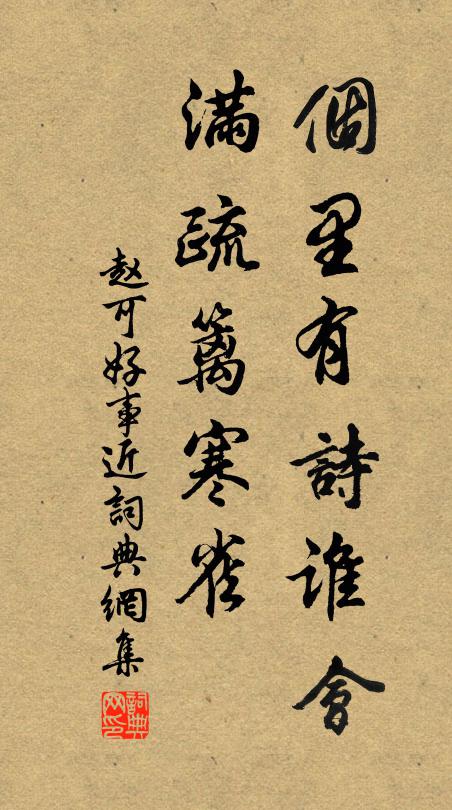 個里有詩誰會
滿疏篱寒雀
赵可好事近詞典網集
詞典网印